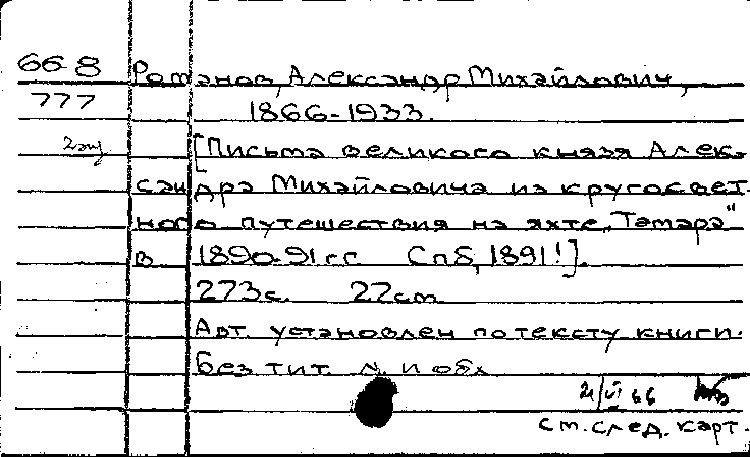 66-8 Романов, Александр Михайлович,
777 1866-1933.
2 экз [Письма великого князя Алек-
сандра Михайловича из кругосвет-
ного путешествия на яхте „Тамара"
в 1890-91 гг. Спб, 1891!].
273 с. 27 см
Авт. установлен по тексту книги.
Без тит. л. и обл
21/VI 66
См. след. карт.